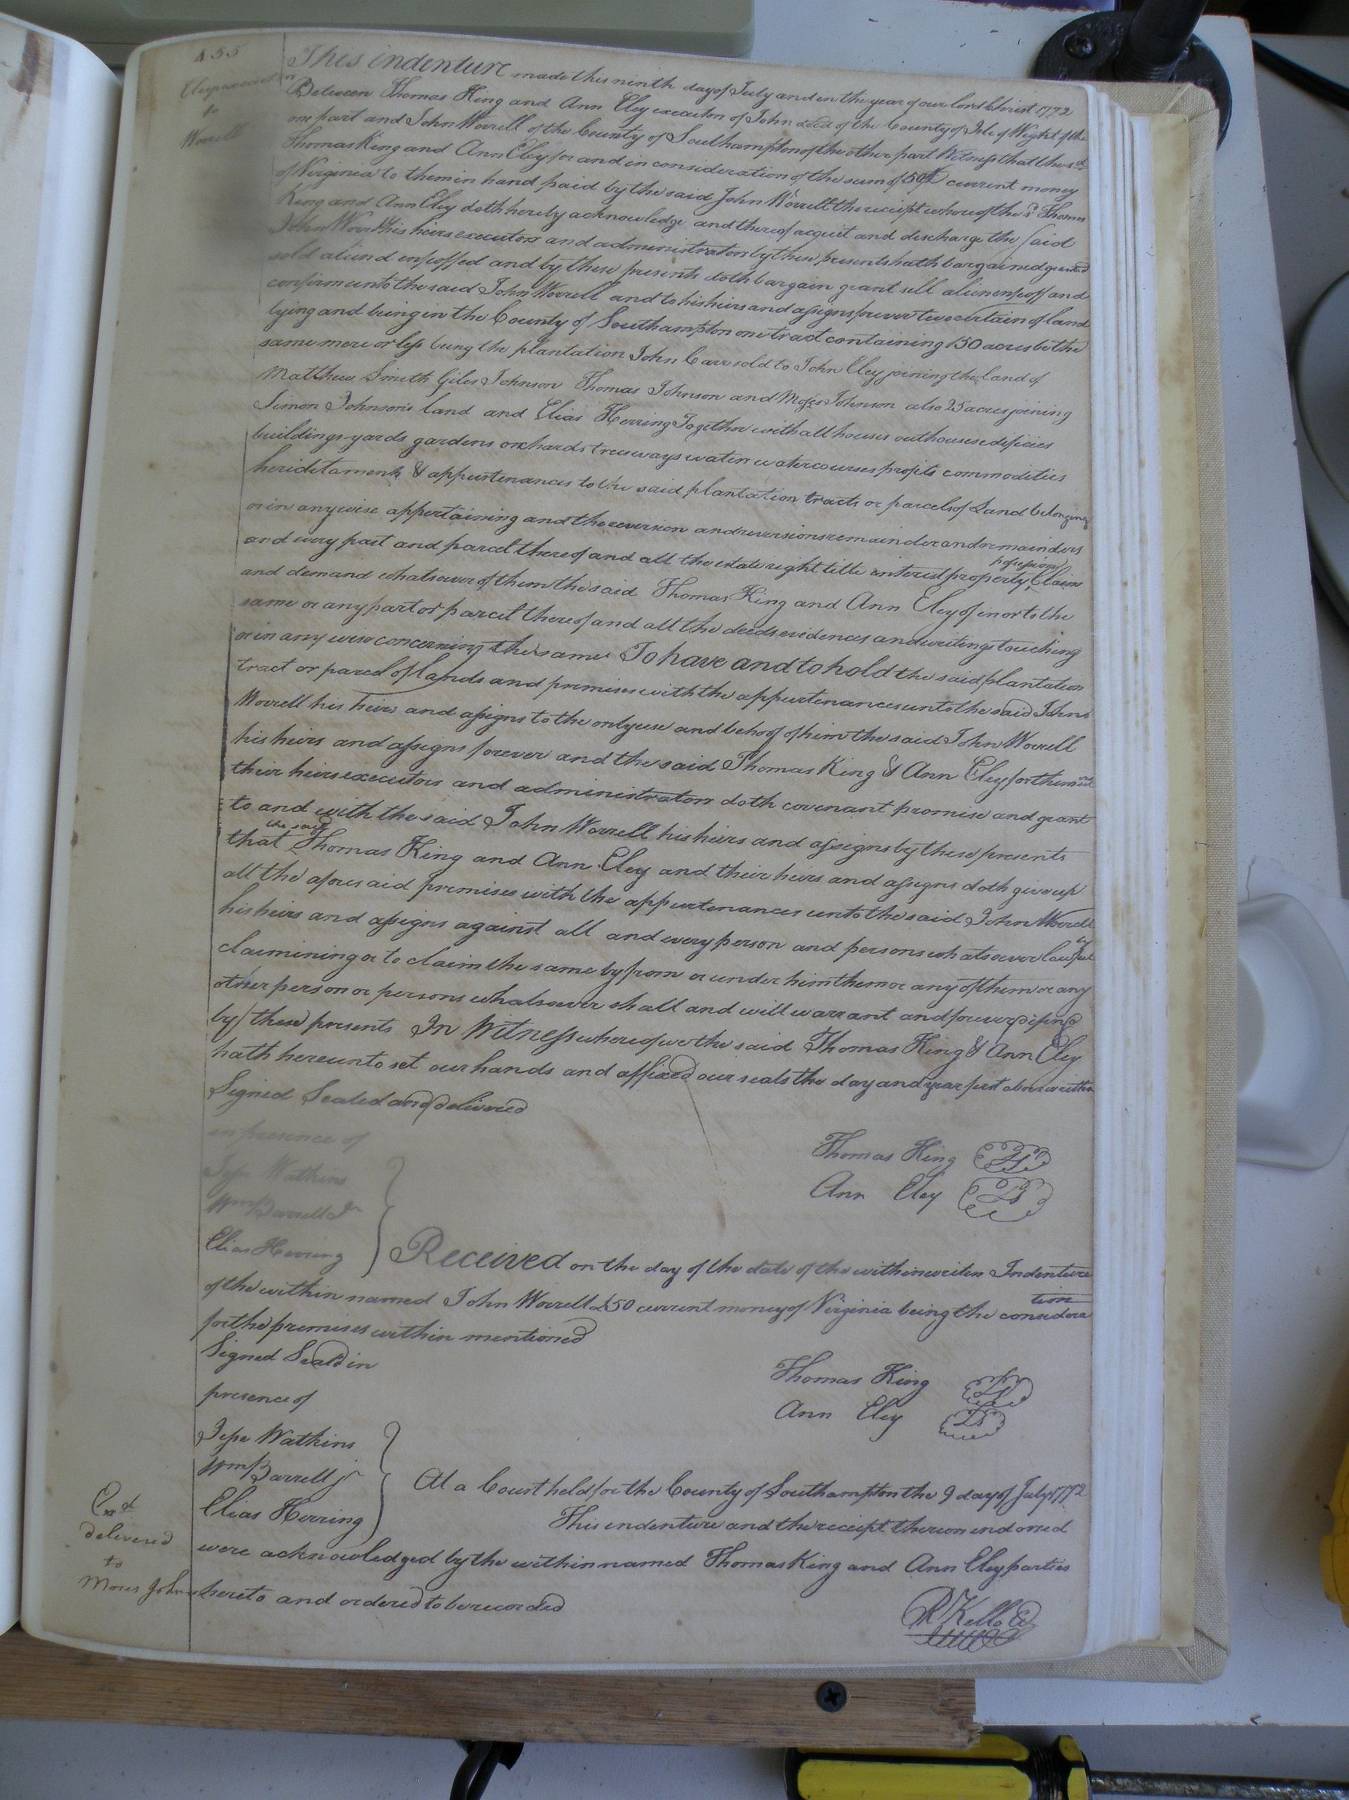 455
to
Worrell
This indenture made this ninth day of July and in the year of our lord Christ 1772
Between Thomas King and Ann Eley executors of John decd of the County of Isle of Wight of the
one part and John Worrell of the County of Southampton of the other part Witnesseth that the sd
Thomas King and Ann Eley for and in consideration of the sum of 50£ current money
of Virginia to them in hand paid by the said John Worrell the receipt whereof the sd Thomas
King and Ann Eley doth hereby acknowledge and thereof acquit and discharge the said
John Worrell his heirs executors and administrators by these presents hath bargained granted
sold aliend enfeoffed and by these presents doth bargain grant sell alien enfeoff and
confirm unto the said John Worrell and to his heirs and assigns forever two certain of land
lying and being in the County of Southampton one tract containing 150 acres be the
same more or less being the plantation John Carr sold to John Eley joining the land of
Matthew Smith Giles Johnson Thomas Johnson and Moses Johnson also 25 acres joining
Simon Johnson's land and Elias Herring Together with all houses outhouses edificies
buildings yards gardens orchards trees ways waters watercourses profits commodities
heriditaments & appurtenances to the said plantation tracts or parcels of Land belonging
or in any wise appertaining and the reversion and reversions remainder and remainders
and every part and parcel thereof and all the estate right title interest property possession Claim
and demand whatsoever of them the said Thomas King and Ann Eley of in or to the
same or any part or parcel thereof and all the deeds evidences and writings touching
or in any wise concerning the same To have and to hold the said plantation
tract or parcel of lands and premises with the appurtenances unto the said John
Worrell his heirs and assigns to the only use and behoof of him the said John Worrell
his heirs and assigns forever and the said Thomas King & Ann Eley for them and
their heirs executors and administrators doth covenant promise and grant
to and with the said John Worrell his heirs and assigns by these presents
that the said Thomas King and Ann Eley and their heirs and assigns doth give up
all the aforesaid premises with the appurtenances unto the said John Worrell
his heirs and assigns against all and every person and persons whatsoever lawfully
claimining or to claim the same by from or under him them or any of them or any
other person or persons whatsoever shall and will warrant and forever defend
by these presents In Witness whereof we the said Thomas King & Ann Eley
hath hereunto set our hands and affixed our seals the day and year first above written
Signed Sealed and delivered
in presence of
Jesse Watkins
Wm Barrell Jr
Elias Herring
Thomas King LS
Ann Eley LS
Received on the day of the date of the within writen Indenture
of the within named John Worrell £50 current money of Virginia being the consideration
for the premises within mentioned
Signed Seald in
presence of
Jesse Watkins
Wm Barrell Jr
Elias Herring
Thomas King LS
Ann Eley LS
At a Court held for the County of Southampton the 9 day of July 1772
This indenture and the receipt thereon endorsed
were acknowledged by the within named Thomas King and Ann Eley parties
hereto and ordered to be recorded
R Kello
delivered
to
Moses John